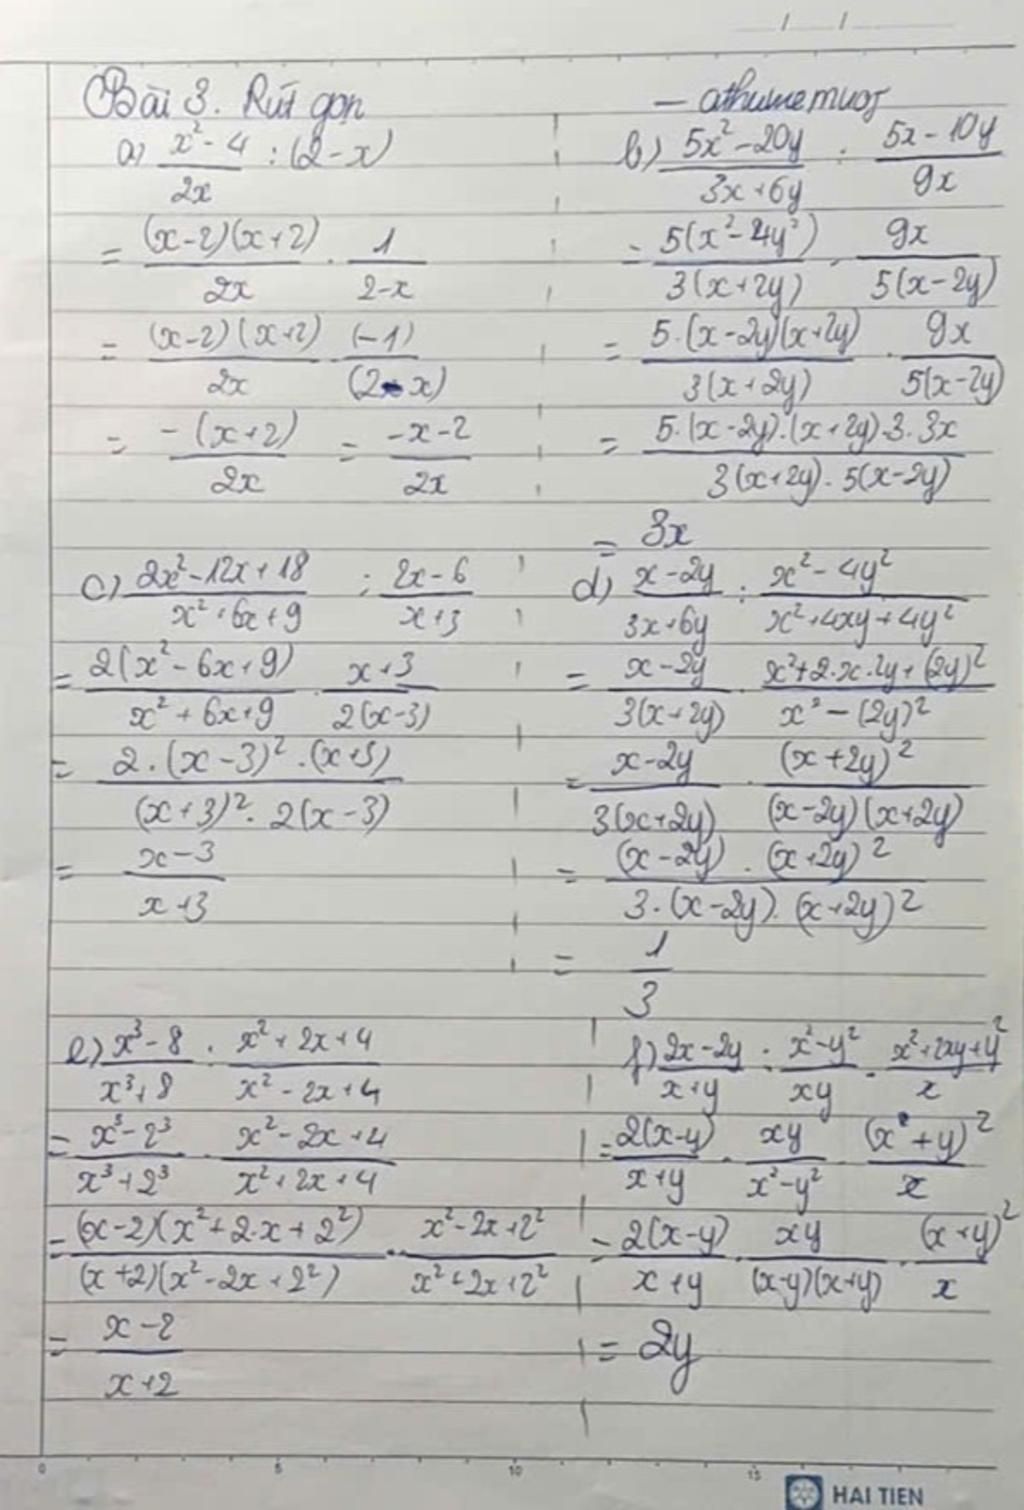 Bài 3. Rút gọn
a) (x² - 4)/(2x) : (2 - x)
= ((x-2)(x+2))/(2x) . 1/(2-x)
= ((x-2)(x+2))/(2x) . (-1)/(2-x)
= (-(x+2))/(2x) = (-x-2)/(2x)
b) (5x² - 20y)/(3x+6y) : (5x - 10y)/(9x)
= (5(x² - 4y²))/(3(x+2y)) . (9x)/(5(x-2y))
= (5.(x-2y)(x+2y))/(3(x+2y)) . (9x)/(5(x-2y))
= (5.(x-2y).(x+2y).3.3x)/(3(x+2y).5(x-2y))
= 3x
c) (2x²-12x+18)/(x²+6x+9) : (2x-6)/(x+3)
= (2(x²-6x+9))/(x²+6x+9) . (x+3)/(2(x-3))
= (2.(x-3)².(x+3))/((x+3)².2(x-3))
= (x-3)/(x+3)
d) (x-2y)/(3x+6y) : (x²-4y²)/(x²+4xy+4y²)
= (x-2y)/(3(x+2y)) . (x²+2.x.2y+(2y)²)/(x²-(2y)²)
= (x-2y)/(3(x+2y)) . (x+2y)²/((x-2y)(x+2y))
= ((x-2y).(x+2y)²)/(3.(x-2y).(x+2y)²)
= 1/3
e) (x³-8)/(x³+8) . (x²+2x+4)/(x²-2x+4)
= (x³-2³)/(x³+2³) . (x²-2x+4)/(x²+2x+4)
= ((x-2)(x²+2.x+2²))/((x+2)(x²-2x+2²)) . (x²-2x+2²)/(x²+2x+2²)
= (x-2)/(x+2)
f) (2x-2y)/(x+y) : (x²-y²)/(xy) . (x²+2xy+y²)/x
= (2(x-y))/(x+y) . (xy)/(x²-y²) . (x+y)²/x
= (2(x-y))/(x+y) . (xy)/((x-y)(x+y)) . (x+y)²/x
= 2y
0 5 10 15
HAI TIEN